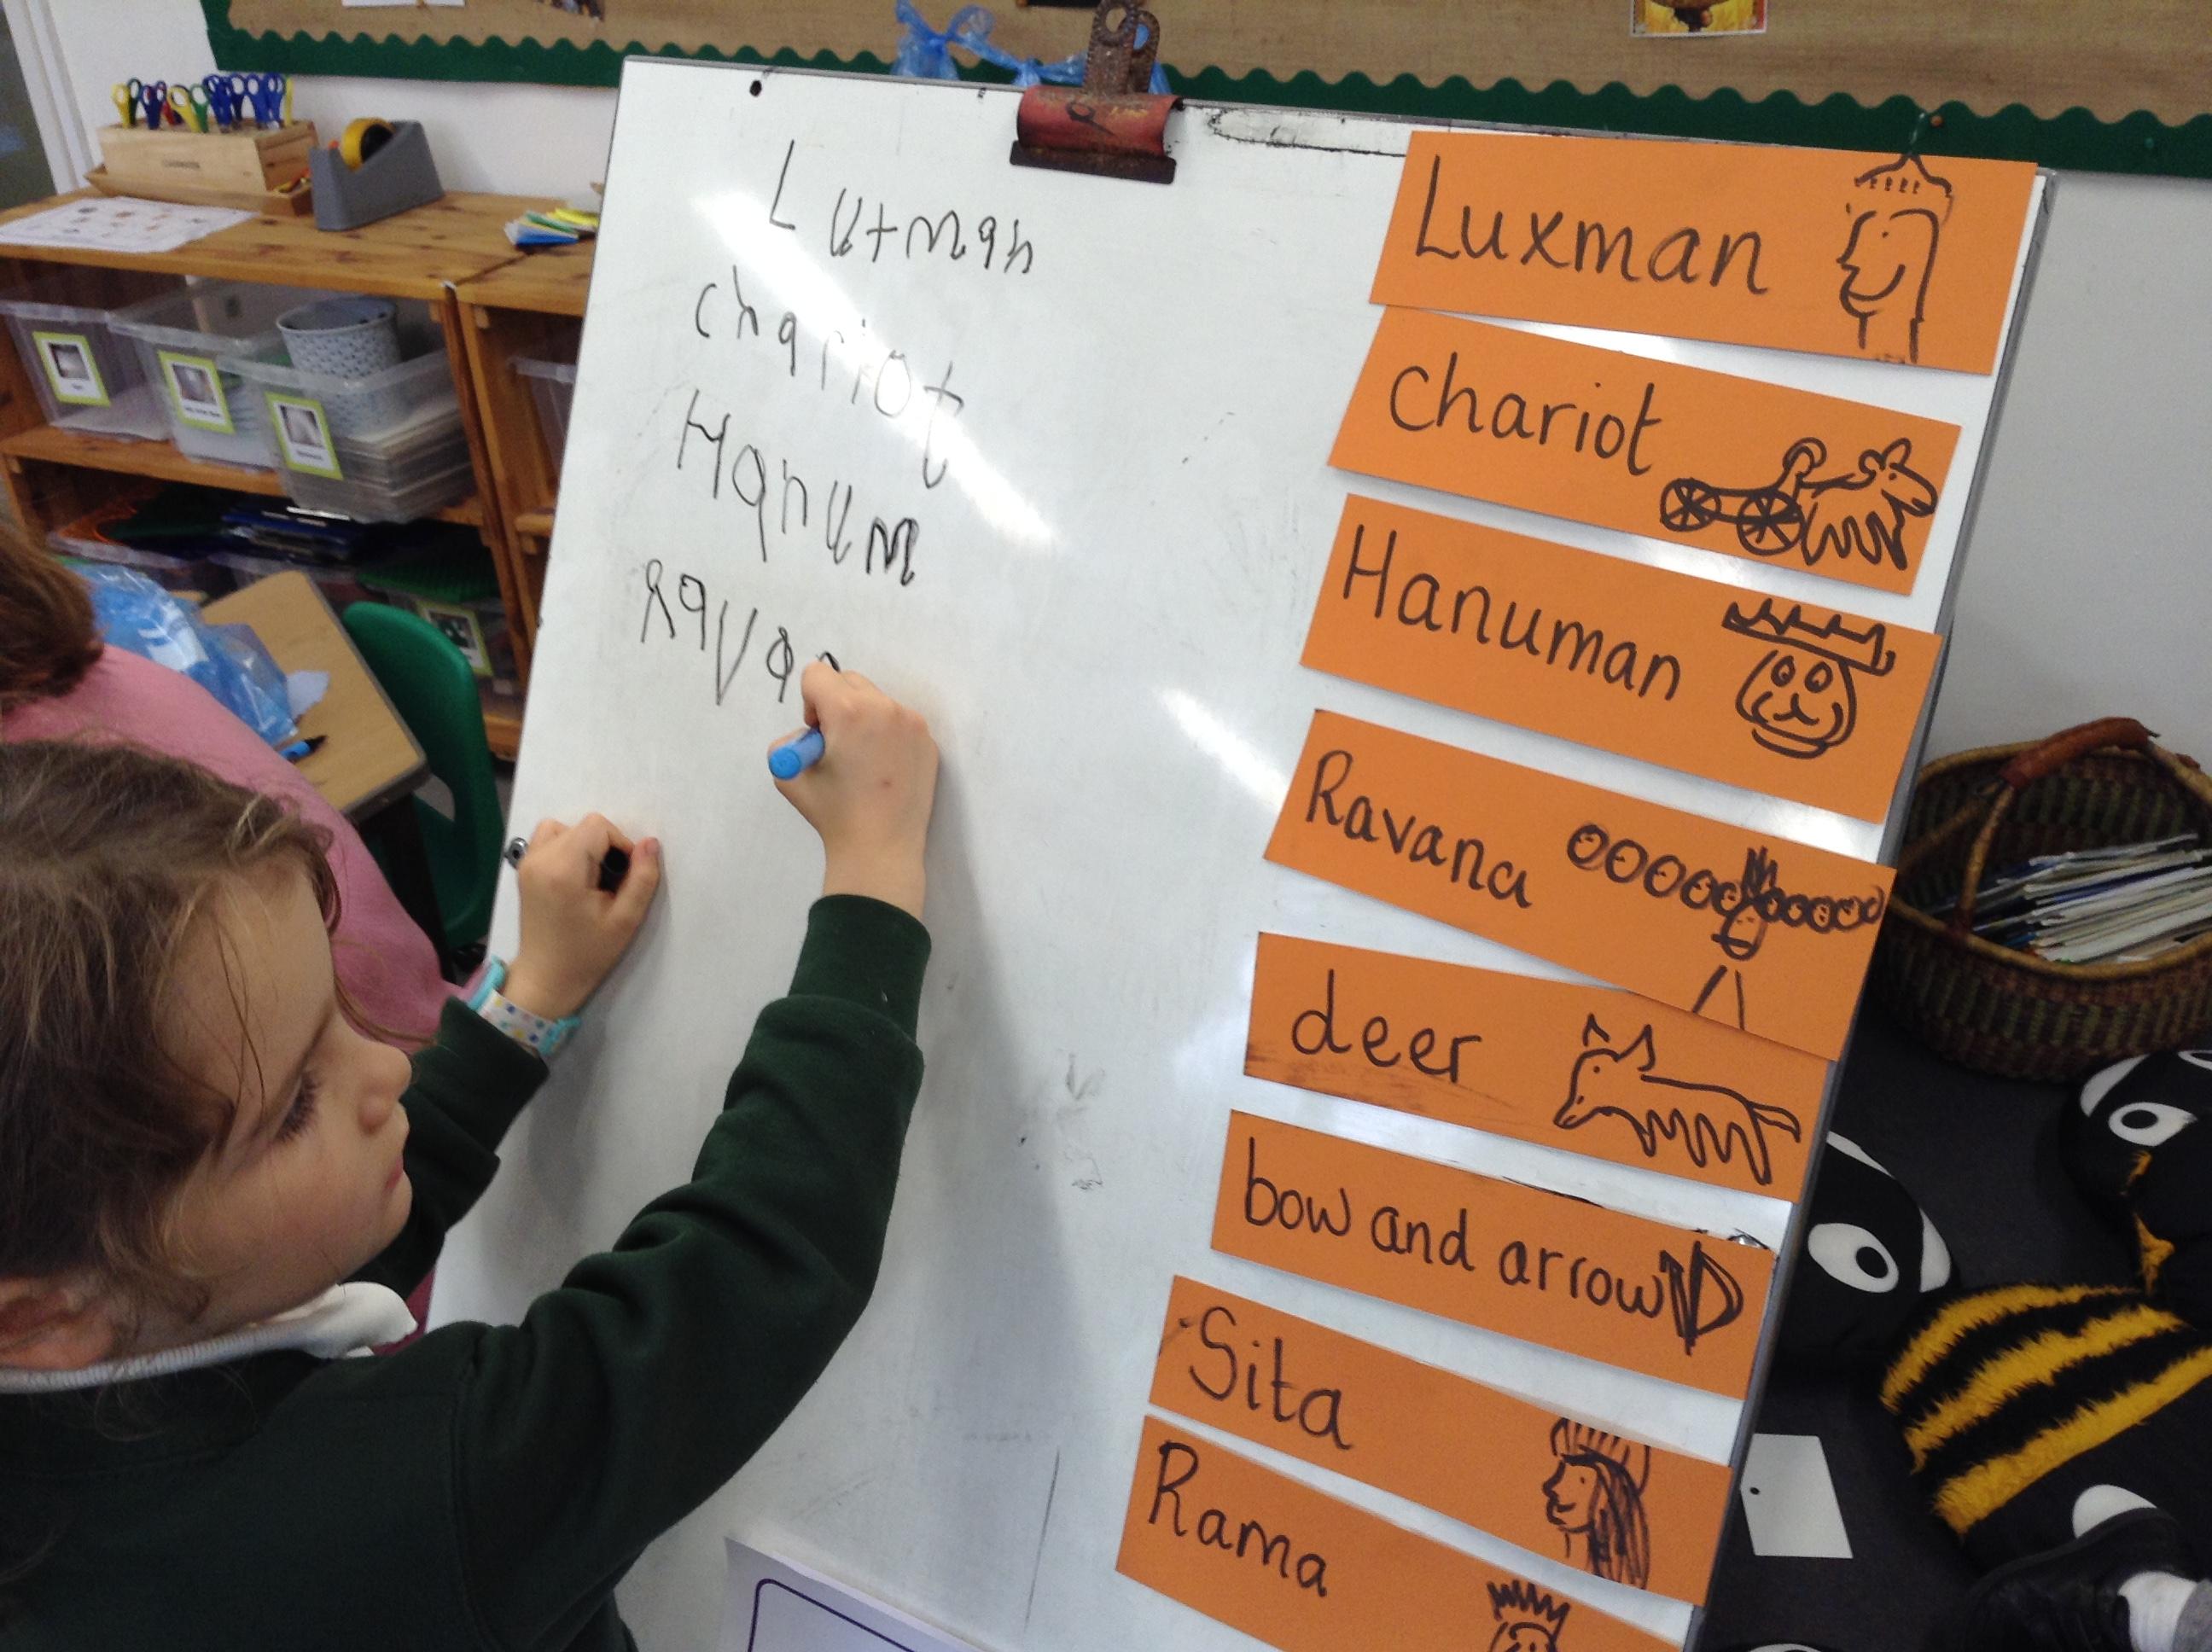 Lutman
chariot
Hanum
Ravan
Luxman
chariot
Hanuman
Ravana
deer
bow and arrow
Sita
Rama